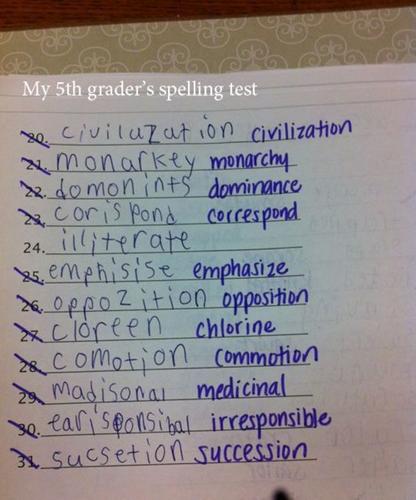 My 5th grader's spelling test
20. civiluzution civilization
21. monarkey monarchy
22. domonints dominance
23. corispond correspond
24. illiterate
25. emphisise emphasize
26. oppozition opposition
27. cloreen chlorine
28. comotion commotion
29. madisonal medicinal
30. earisponsibal irresponsible
31. sucsetion succession